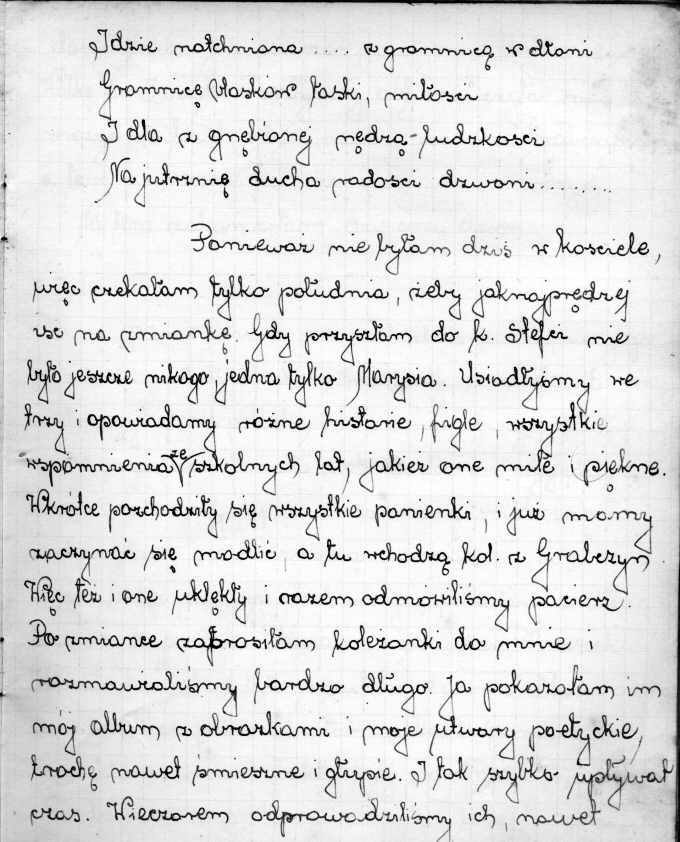 Idzie natchniona .... z gromnicą w dłoni
Gromnicę blasków łaski, miłości
I dla z gnębionej nędzą-ludzkości
Na jutrznię ducha radości dzwoni........
Ponieważ nie byłam dziś w kosciele,
więc czekałam tylko południa, żeby jaknajprędzej
isc na zmiankę. Gdy przyszłam do k. Stefci nie
było jeszcze nikogo, jedna tylko Marysia. Usiadłyśmy we
trzy i opowiadamy różne historie, figle, wszystkie
wspomnienia ze szkolnych lat, jakież one miłe i piękne.
Wkrótce poschodziły się wszystkie panienki, i już mamy
zaczynać się modlić, a tu wchodzą kol. z Grabczyn
Więc też i one uklękły i razem odmówiliśmy pacierz.
Po zmiance zaprosiłam koleżanki do mnie i
rozmawialiśmy bardzo długo. Ja pokazałam im
mój album z obrazkami i moje utwory po-etyckie,
trochę nawet śmieszne i głupie. I tak szybko upływał
czas. Wieczorem odprowadziliśmy ich, nawet